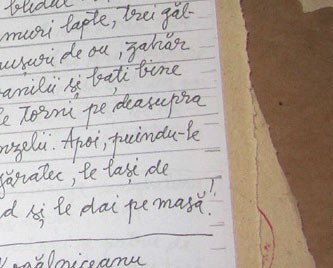 blidul
muri lapte, trei găl-
ușuri de ou, zahăr
vanilii și bați bine
le torni pe deasupra
nzelii. Apoi, puindu-le
șăratec, le lași de
d și le dai pe masă!
Kogălniceanu